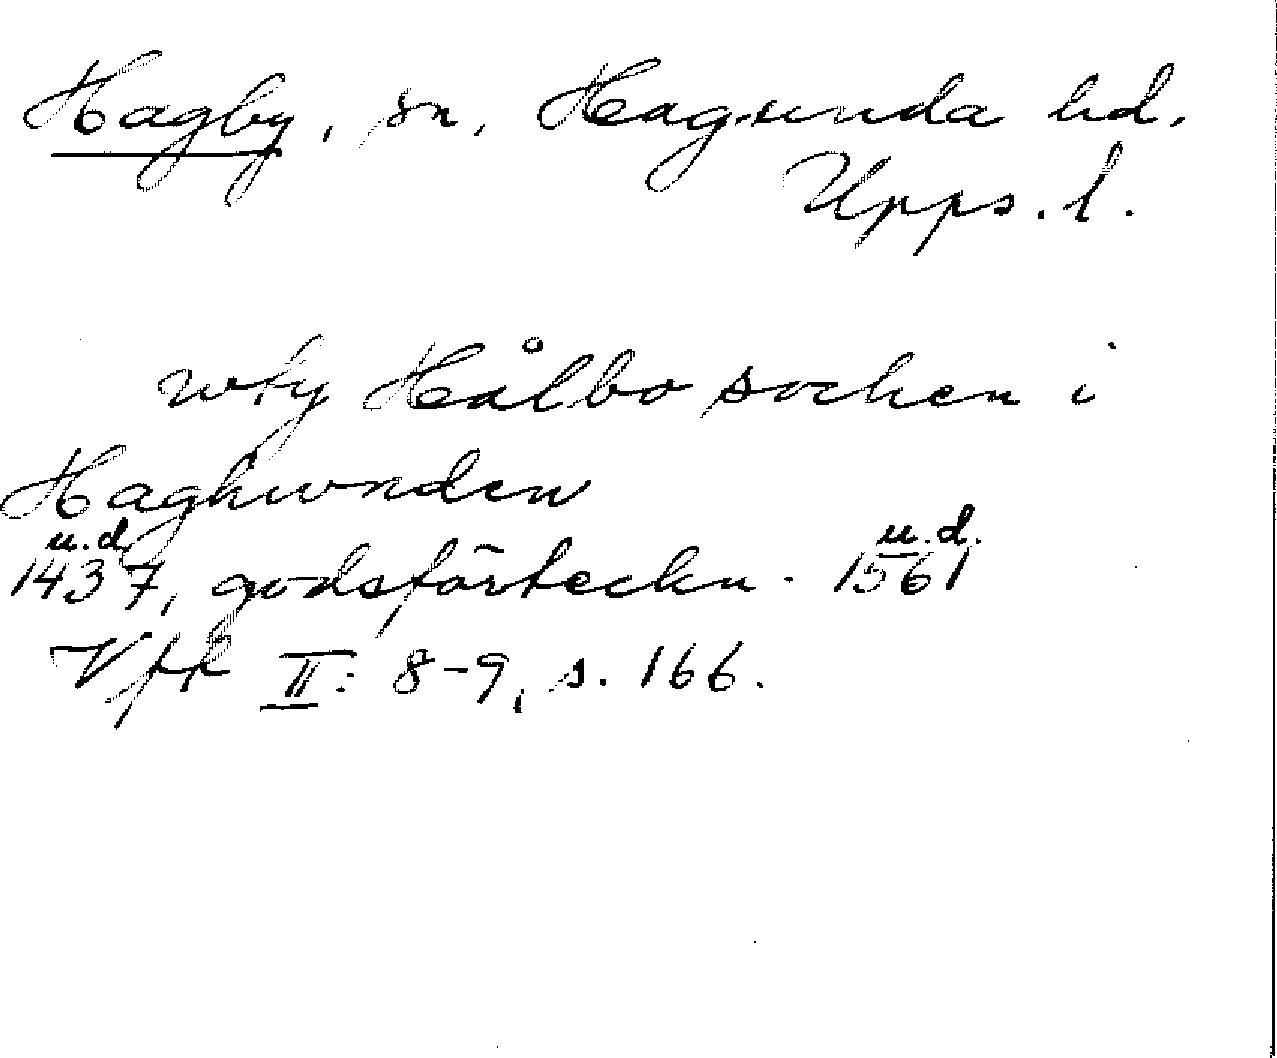 Hagby, sn, Hagunda hd.
Upps. l.
wty Hålbo sochen i
Haghwnden
u.d. u.d.
1437, godsförteckn. 1561
Vff II: 8-9, s. 166.